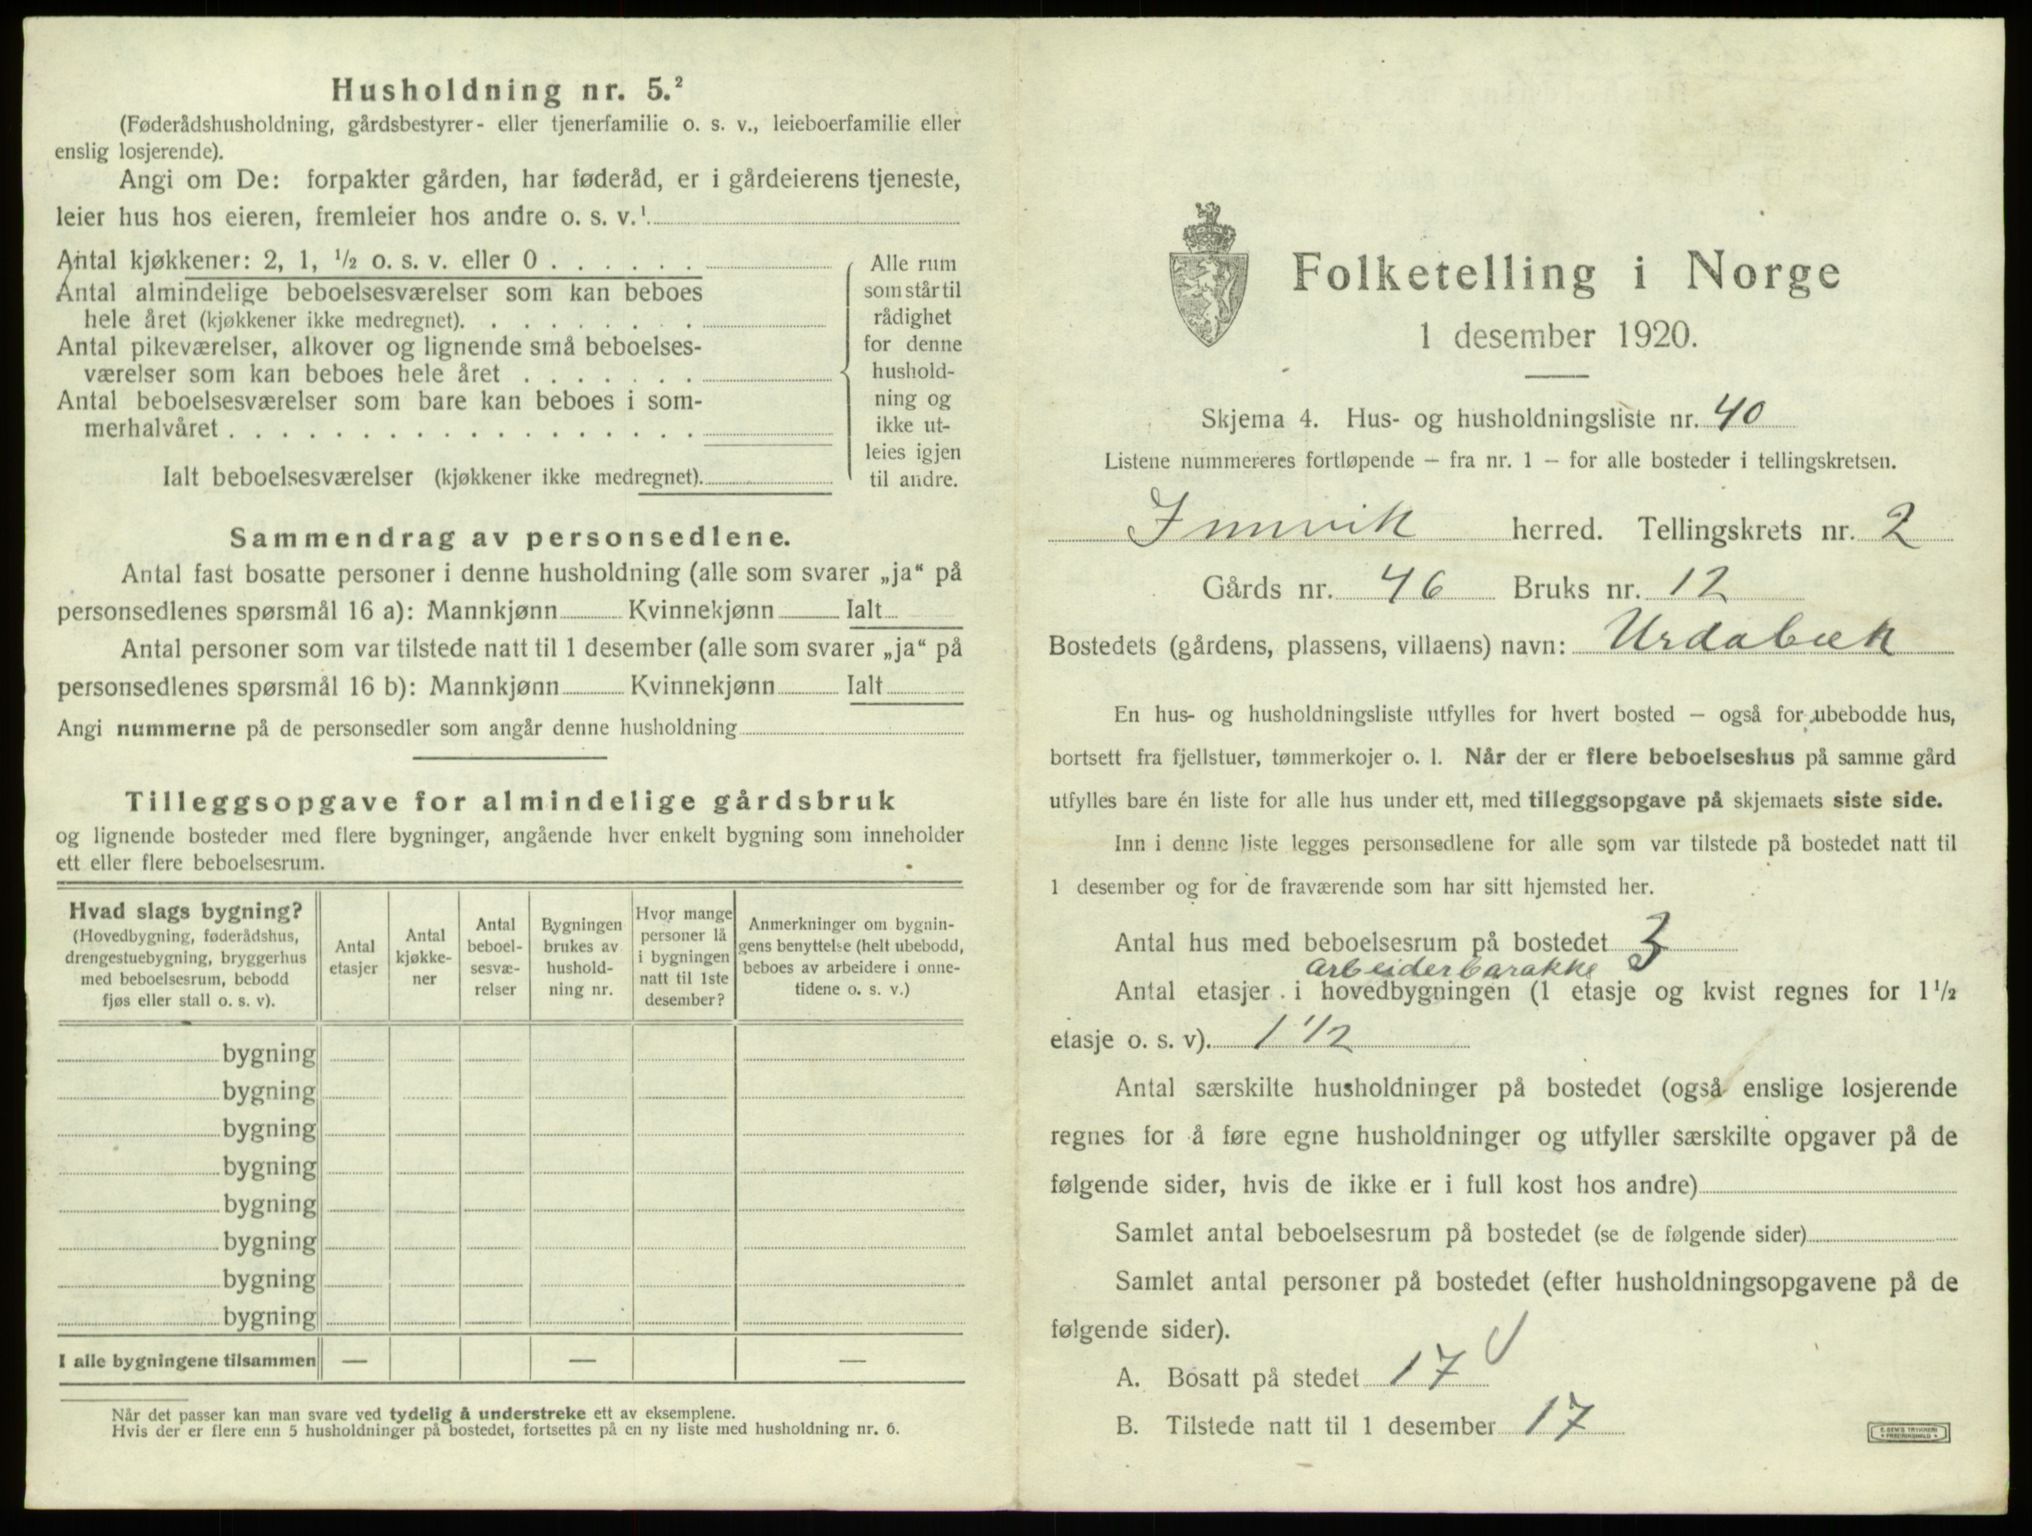 Husholdning nr. 5.²
(Føderådshusholdning, gårdsbestyrer- eller tjenerfamilie o. s. v., leieboerfamilie eller
enslig losjerende).
Angi om De: forpakter gården, har føderåd, er i gårdeierens tjeneste,
leier hus hos eieren, fremleier hos andre o. s. v.¹
Antal kjøkkener: 2, 1, ½ o. s. v. eller 0
Antal almindelige beboelsesværelser som kan beboes
hele året (kjøkkener ikke medregnet).
Antal pikeværelser, alkover og lignende små beboelses-
værelser som kan beboes hele året
Antal beboelsesværelser som bare kan beboes i som-
merhalvåret
Ialt beboelsesværelser (kjøkkener ikke medregnet).
Alle rum
som står til
rådighet
for denne
hushold-
ning og
ikke ut-
leies igjen
til andre.
Sammendrag av personsedlene.
Antal fast bosatte personer i denne husholdning (alle som svarer „ja“ på
personsedlenes spørsmål 16 a): Mannkjønn Kvinnekjønn Ialt
Antal personer som var tilstede natt til 1 desember (alle som svarer „ja“ på
personsedlenes spørsmål 16 b): Mannkjønn Kvinnekjønn Ialt
Angi nummerne på de personsedler som angår denne husholdning
Tilleggsopgave for almindelige gårdsbruk
og lignende bosteder med flere bygninger, angående hver enkelt bygning som inneholder
ett eller flere beboelsesrum.
Hvad slags bygning?
(Hovedbygning, føderådshus,
drengestuebygning, bryggerhus
med beboelsesrum, bebodd
fjøs eller stall o. s. v).
Antal
etasjer
Antal
kjøkke-
ner
Antal
beboel-
sesvæ-
relser
Bygningen
brukes av
hushold-
ning nr.
Hvor mange
personer lå
i bygningen
natt til 1ste
desember?
Anmerkninger om bygnin-
gens benyttelse (helt ubebodd,
beboes av arbeidere i onne-
tidene o. s. v.)
bygning
bygning
bygning
bygning
bygning
bygning
bygning
bygning
I alle bygningene tilsammen — — —
Når det passer kan man svare ved tydelig å understreke ett av eksemplene.
Hvis der er flere enn 5 husholdninger på bostedet, fortsettes på en ny liste med husholdning nr. 6.
Folketelling i Norge
1 desember 1920.
Skjema 4. Hus- og husholdningsliste nr. 40
Listene nummereres fortløpende – fra nr. 1 – for alle bosteder i tellingskretsen.
Innvik herred. Tellingskrets nr. 2
Gårds nr. 46 Bruks nr. 12
Bostedets (gårdens, plassens, villaens) navn: Urdabæk
En hus- og husholdningsliste utfylles for hvert bosted – også for ubebodde hus,
bortsett fra fjellstuer, tømmerkojer o. l. Når der er flere beboelseshus på samme gård
utfylles bare én liste for alle hus under ett, med tilleggsopgave på skjemaets siste side.
Inn i denne liste legges personsedlene for alle som var tilstede på bostedet natt til
1 desember og for de fraværende som har sitt hjemsted her.
Antal hus med beboelsesrum på bostedet 3
Arbeiderbarakke
Antal etasjer i hovedbygningen (1 etasje og kvist regnes for 1½
etasje o. s. v). 1 1/2
Antal særskilte husholdninger på bostedet (også enslige losjerende
regnes for å føre egne husholdninger og utfyller særskilte opgaver på de
følgende sider, hvis de ikke er i full kost hos andre)
Samlet antal beboelsesrum på bostedet (se de følgende sider)
Samlet antal personer på bostedet (efter husholdningsopgavene på de
følgende sider).
A. Bosatt på stedet 17
B. Tilstede natt til 1 desember 17